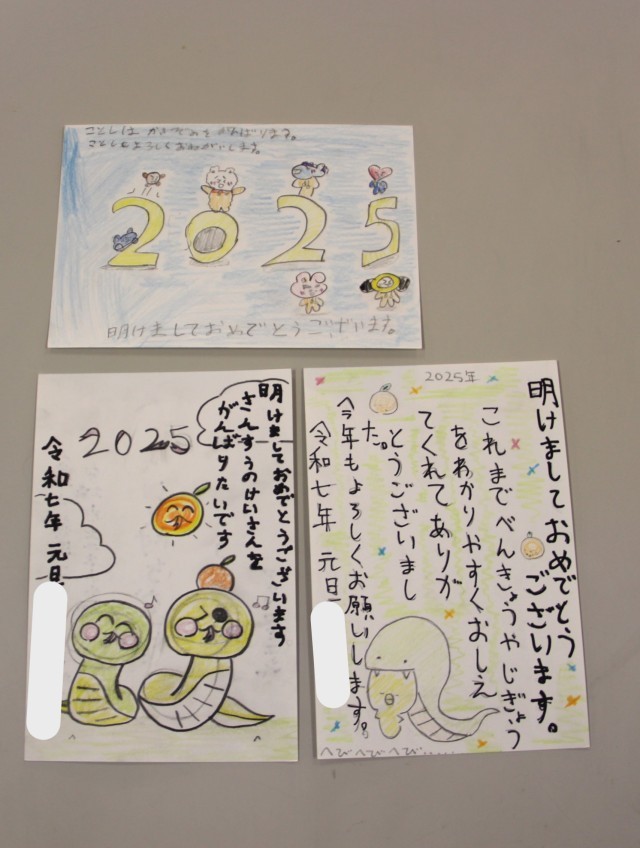 ことしは かきぞめをがんばります。
ことしもよろしくおねがいします。
2025
明けましておめでとうございます。
明けましておめでとうございます
さんすうのけいさんを
がんばりたいです
2025
令和七年 元旦
2025年
明けましておめでとう
ございます。
これまでべんきょうやじぎょう
をわかりやすくおしえ
てくれてありが
とうございまし
た。
今年もよろしくお願いします。
令和七年 元旦
へびへびへび……